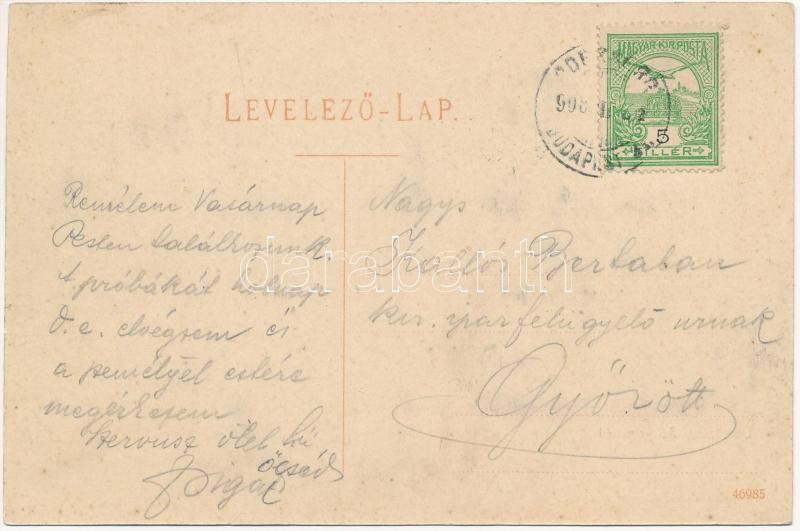 LEVELEZŐ-LAP.
MAGYAR·KIR·POSTA
5
FILLÉR
BUDAPEST
Remélem Vasárnap
Pesten találkozunk.
A próbákat holnap
d. e. elvégzem és
a személyel estére
megérkezem
Servusz ölel hű
öcséd
Nagys
Bertalan
kir. iparfelügyelő urnak
Győrött
darabanth
46985